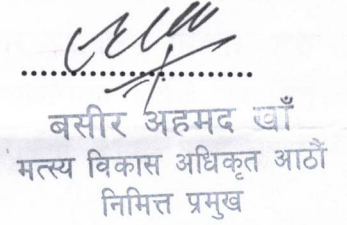 बसीर अहमद खाँ
मत्स्य विकास अधिकृत आठौं
निमित्त प्रमुख